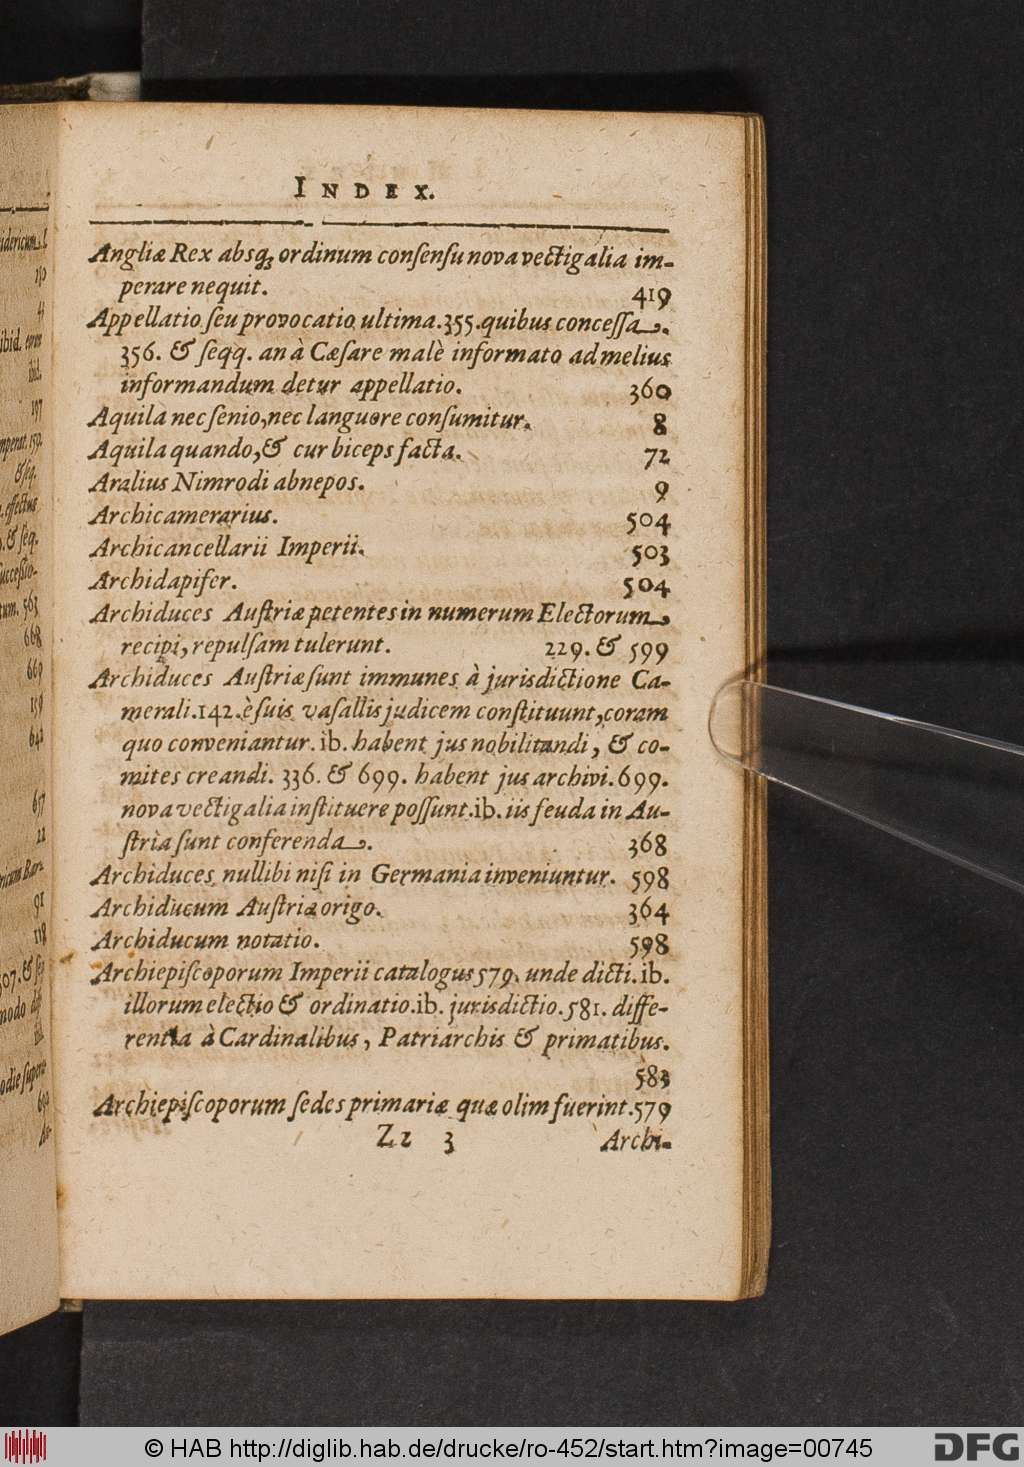 INDEX.
Angliæ Rex absq; ordinum conſenſu nova vectigalia im-
perare nequit. 419
Appellatio ſeu provocatio ultima. 355. quibus conceſſa.
356. & ſeqq. an à Cæſare malè informato ad melius
informandum detur appellatio. 360
Aquila nec ſenio, nec languore conſumitur. 8
Aquila quando, & cur biceps facta. 72
Aralius Nimrodi abnepos. 9
Archicamerarius. 504
Archicancellarii Imperii. 503
Archidapifer. 504
Archiduces Auſtriæ petentes in numerum Electorum
recipi, repulſam tulerunt. 229. & 599
Archiduces Auſtriæ ſunt immunes à jurisdictione Ca-
merali. 142. è ſuis vaſallis judicem conſtituunt, coram
quo conveniantur. ib. habent jus nobilitandi, & co-
mites creandi. 336. & 699. habent jus archivi. 699.
nova vectigalia inſtituere poſſunt. ib. iis feuda in Au-
ſtria ſunt conferenda. 368
Archiduces nullibi niſi in Germania inveniuntur. 598
Archiducum Auſtriæ origo. 364
Archiducum notatio. 598
Archiepiſcoporum Imperii catalogus 579. unde dicti. ib.
illorum electio & ordinatio. ib. jurisdictio. 581. diffe-
rentia à Cardinalibus, Patriarchis & primatibus.
583
Archiepiſcoporum ſedes primariæ quæ olim fuerint. 579
Zz 3 Archi-
© HAB http://diglib.hab.de/drucke/ro-452/start.htm?image=00745
DFG